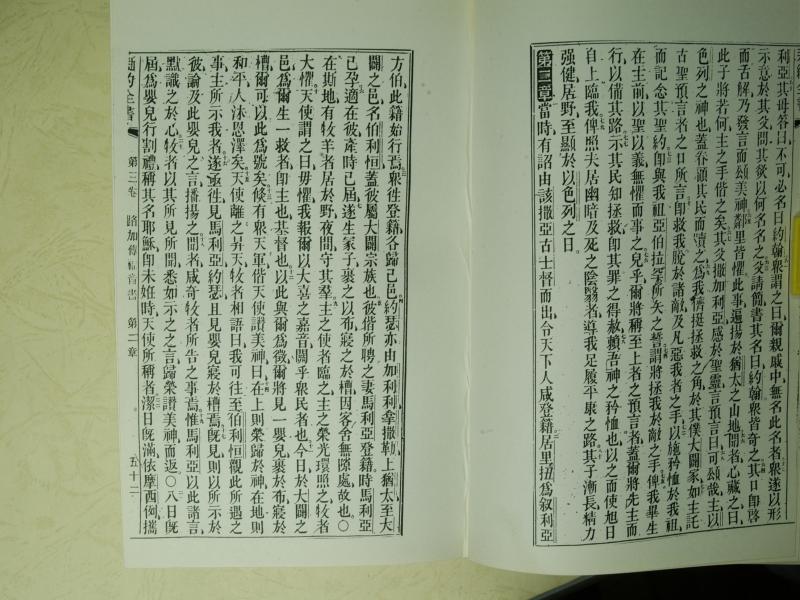 利亞其母答曰不可必名曰約翰衆謂之曰爾親戚中無名此名者衆遂以形
示意於其父問其欲以何名名之父請簡書其名曰約翰衆皆奇之其口即啓
而舌解乃發言而頌美神鄰里皆懼此事遍揚於猶太之山地聞者心藏之曰
此子將若何主之手偕之矣其父撒加利亞感於聖靈言預言曰可頌哉主以
色列之神也蓋眷顧其民而贖之爲我儕挺拯救之角於其僕大闢家如主託
古聖預言者之口所言即救我脫於諸敵及凡惡我者之手以施矜恤於我祖
而記念其聖約即與我祖亞伯拉罕所矢之誓謂將拯我於敵之手俾我畢生
在主前以聖以義無懼而事之兒乎爾將稱至上者之預言者蓋爾將先主而
行以備其路示其民知拯救即其罪之得赦賴吾神之矜恤也以之而使旭日
自上臨我俾照夫居幽暗及死之陰翳者導我足履平康之路其子漸長精力
强健居野至顯於以色列之日
第二章當時有詔由該撒亞古士督而出令天下人咸登籍居里扭爲叙利亞
方伯此籍始行焉衆往登籍各歸己邑約瑟亦由加利利拿撒勒上猶太至大
闢之邑名伯利恒蓋彼屬大闢宗族也彼偕所聘之妻馬利亞登籍時馬利亞
已孕適在彼產時已屆遂生冢子裹之以布寢之於槽因客舍無隙處故也〇
在斯地有牧羊者居於野夜間守其羣主之使者臨之主之榮光環照之牧者
大懼天使謂之曰毋懼我報爾以大喜之嘉音關乎衆民者也今日於大闢之
邑爲爾生一救者即主也基督也以此與爾爲徵爾將見一嬰兒裹於布寢於
槽爾可以此爲號矣倐有衆天軍偕天使讚美神曰在上則榮歸於神在地則
和平人沐恩澤矣天使離之昇天牧者相語曰我可往至伯利恒觀此所遇之
事主所示我者遂亟徃見馬利亞約瑟且見嬰兒寢於槽焉旣見則以所示於
彼論及此嬰兒之言播揚之聞者咸奇牧者所告之事焉惟馬利亞以此諸言
默識之於心牧者以其所見所聞悉如示之之言歸榮讚美神而返〇八日旣
屆爲嬰兒行割禮稱其名耶穌即未姙時天使所稱者潔日旣滿依摩西例攜
約全書 第三卷 路加傳福音書 第二章 五十二